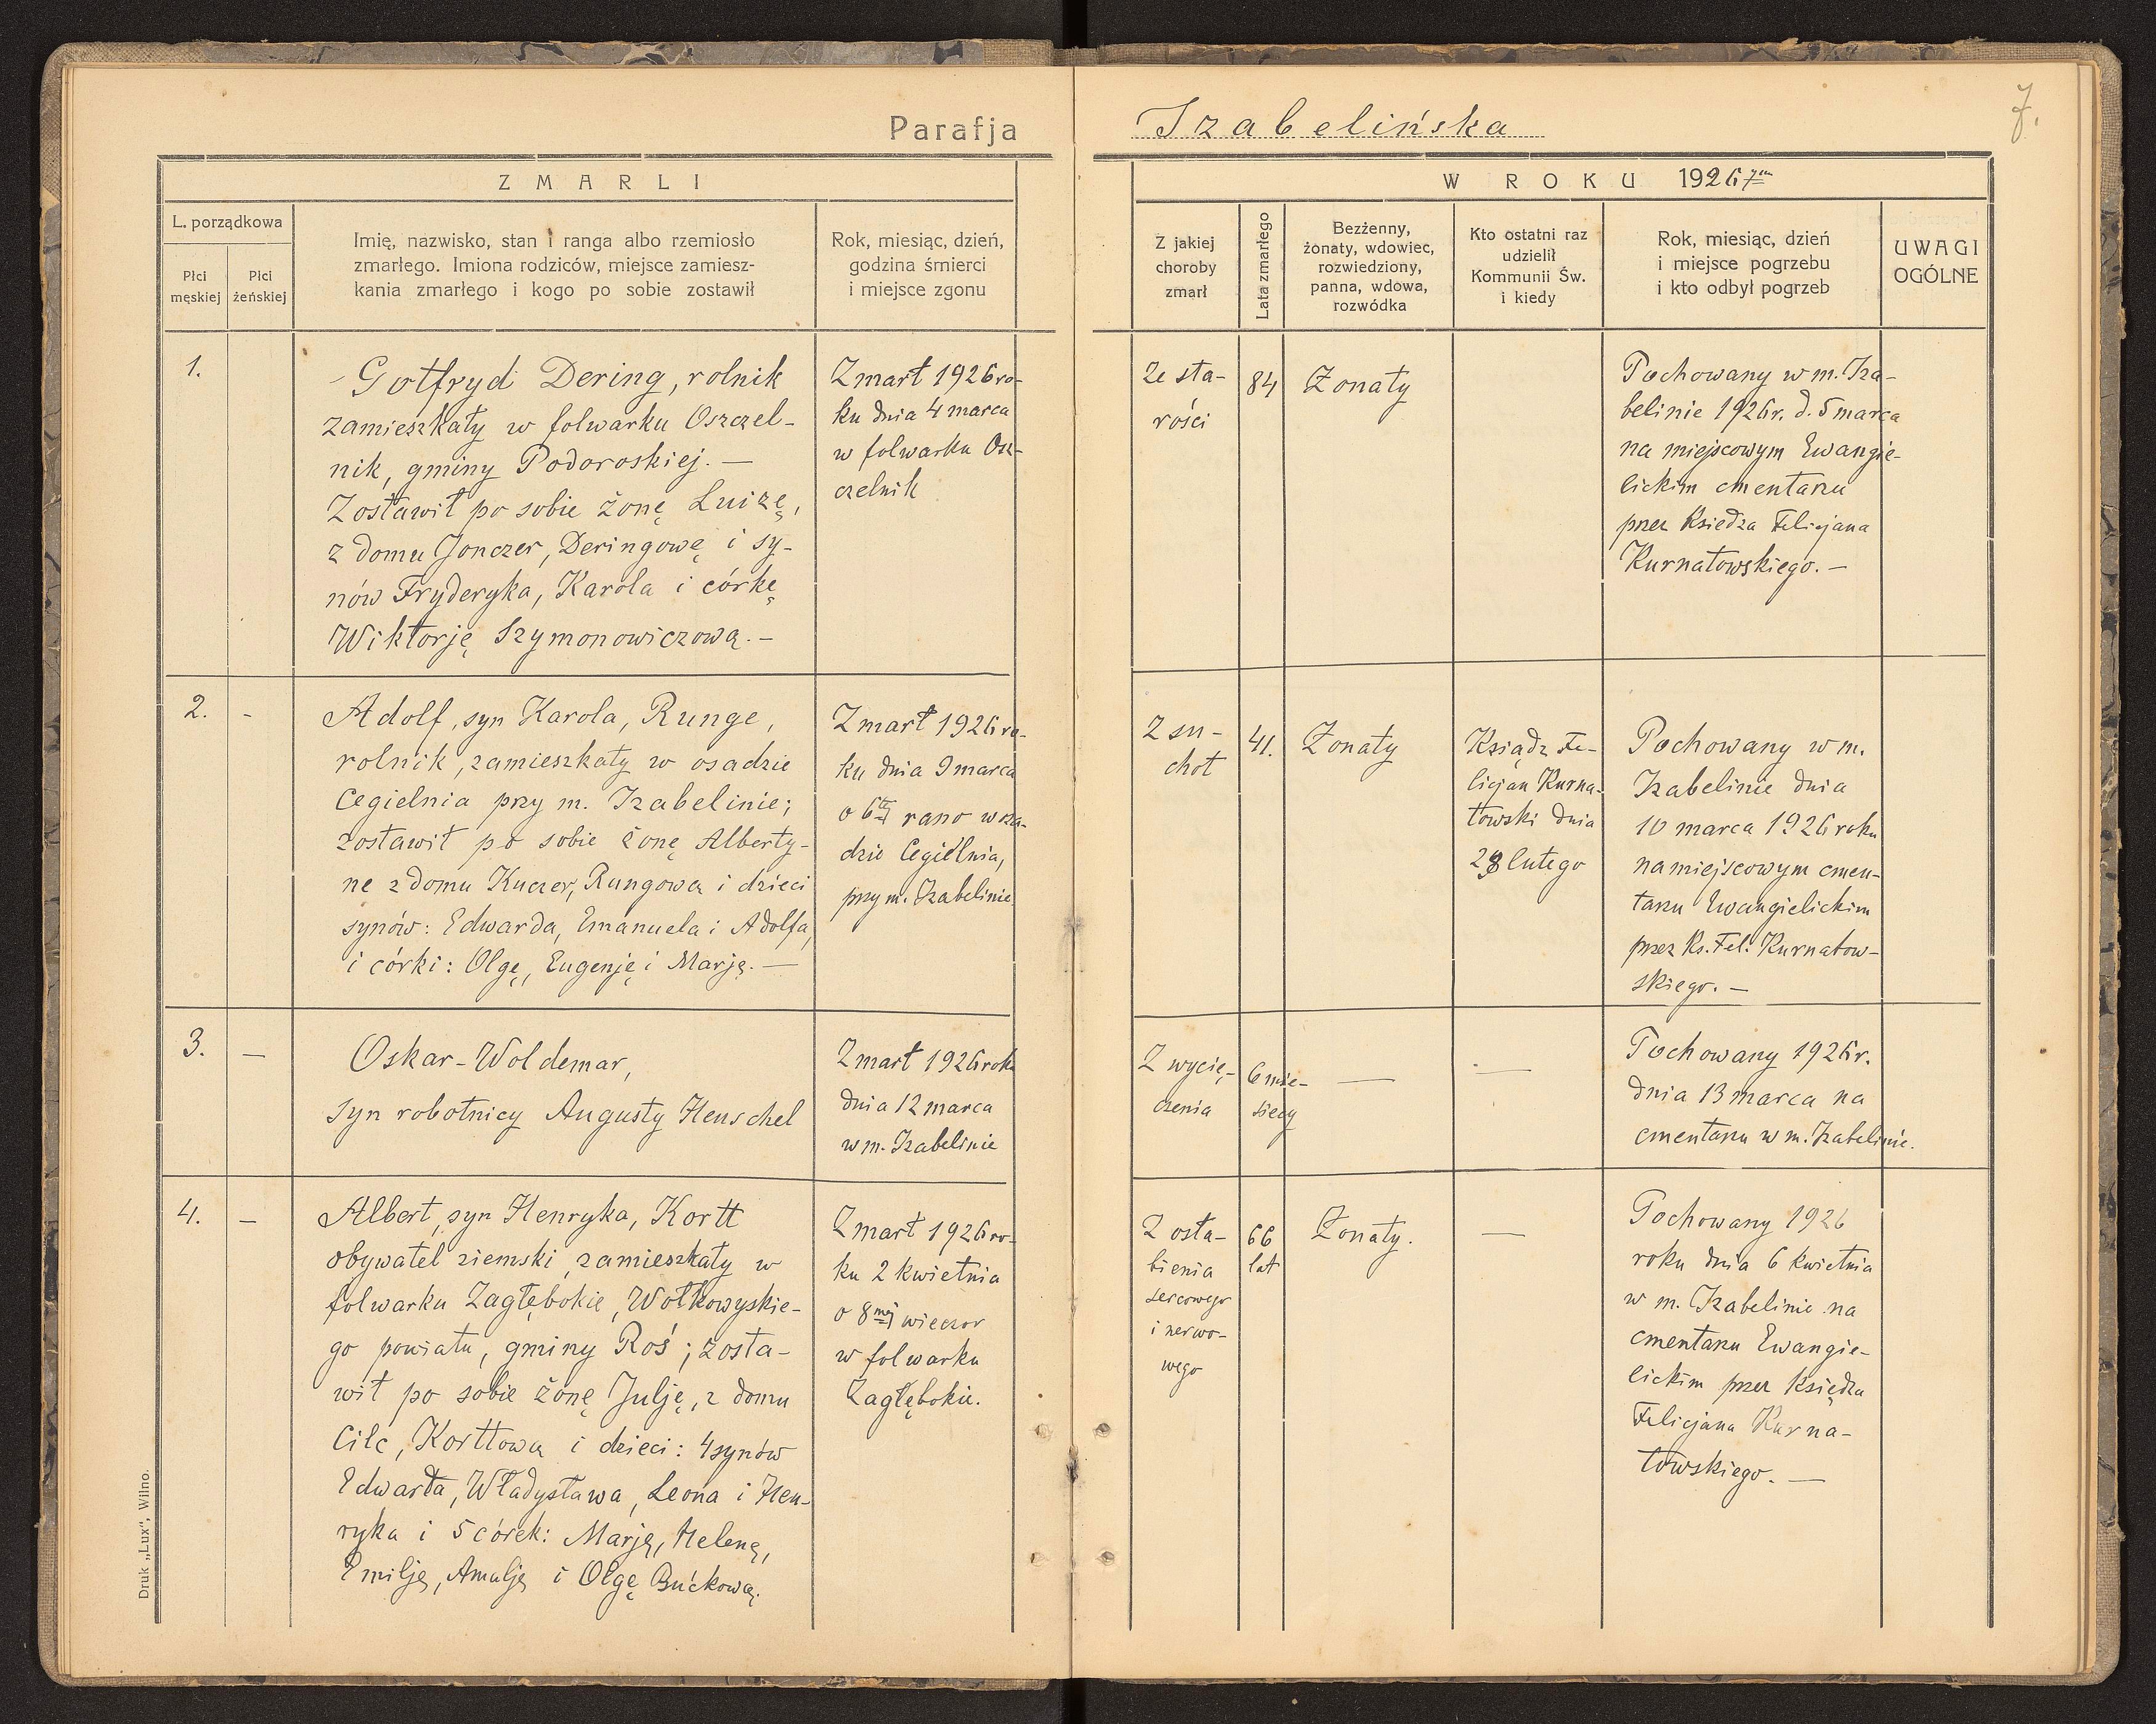 Parafja Izabelińska
7.
ZMARLI
W ROKU 1926 7m
L. porządkowa
Płci męskiej
Płci żeńskiej
Imię, nazwisko, stan i ranga albo rzemiosło
zmarłego. Imiona rodziców, miejsce zamiesz-
kania zmarłego i kogo po sobie zostawił
Rok, miesiąc, dzień,
godzina śmierci
i miejsce zgonu
Z jakiej
choroby
zmarł
Lata zmarłego
Bezżenny,
żonaty, wdowiec,
rozwiedziony,
panna, wdowa,
rozwódka
Kto ostatni raz
udzielił
Kommunii Św.
i kiedy
Rok, miesiąc, dzień
i miejsce pogrzebu
i kto odbył pogrzeb
UWAGI
OGÓLNE
1.
Gotfryd Dering, rolnik
zamieszkały w folwarku Oszczel-
nik, gminy Podoroskiej. —
Zostawił po sobie żonę Luizę,
z domu Jonczer, Deringowę i sy-
nów Fryderyka, Karola i córkę
Wiktorję Szymonowiczową. —
Zmarł 1926 ro-
ku dnia 4 marca
w folwarku Osz-
czelnik
Ze sta-
rości
84
Żonaty
Pochowany w m. Iza-
belinie 1926 r. d. 5 marca
na miejscowym Ewangie-
lickim cmentarzu
przez Ksiedza Felicjana
Kurnatowskiego. —
2. -
Adolf, syn Karola, Runge,
rolnik, zamieszkały w osadzie
Cegielnia przy m. Izabelinie;
zostawił po sobie żonę Alberty-
nę z domu Kuczer, Rungową i dzieci
synów: Edwarda, Emanuela i Adolfa,
i córki: Olgę, Eugenję i Marję. —
Zmarł 1926 ro-
ku dnia 9 marca
o 6tej rano w osa-
dzie Cegielnia,
przy m. Izabelinie
Z su-
chot
41.
Żonaty
Ksiądz Fe-
licjan Kurna-
towski dnia
28 lutego
Pochowany w m.
Izabelinie dnia
10 marca 1926 roku
na miejscowym cmen-
tarzu Ewangielickim
przez Ks. Fel. Kurnatow-
skiego. —
3. —
Oskar-Woldemar,
syn robotnicy Augusty Henschel
Zmarł 1926 roku
dnia 12 marca
w m. Izabelinie
Z wycię-
czenia
6 mie-
sięcy
—
—
Pochowany 1926 r.
dnia 13 marca na
cmentarzu w m. Izabelinie.
4. —
Albert, syn Henryka, Kortt
obywatel ziemski, zamieszkały w
folwarku Zagłębokie, Wołkowyskie-
go powiatu, gminy Roś; zosta-
wił po sobie żonę Julję, z domu
Cilc, Korttową i dzieci: 4 synów
Edwarda, Władysława, Leona i Hen-
ryka i 5 córek: Marję, Helenę,
Emilję, Amalję i Olgę Bućkową.
Zmarł 1926 ro-
ku 2 kwietnia
o 8mej wieczor
w folwarku
Zagłębokie.
Z osła-
bienia
sercowego
i nerwo-
wego
66
lat
Żonaty.
—
Pochowany 1926
roku dnia 6 kwietnia
w m. Izabelinie na
cmentarzu Ewangie-
lickim przez Księdza
Felicjana Kurna-
towskiego. —
Druk „Lux", Wilno.